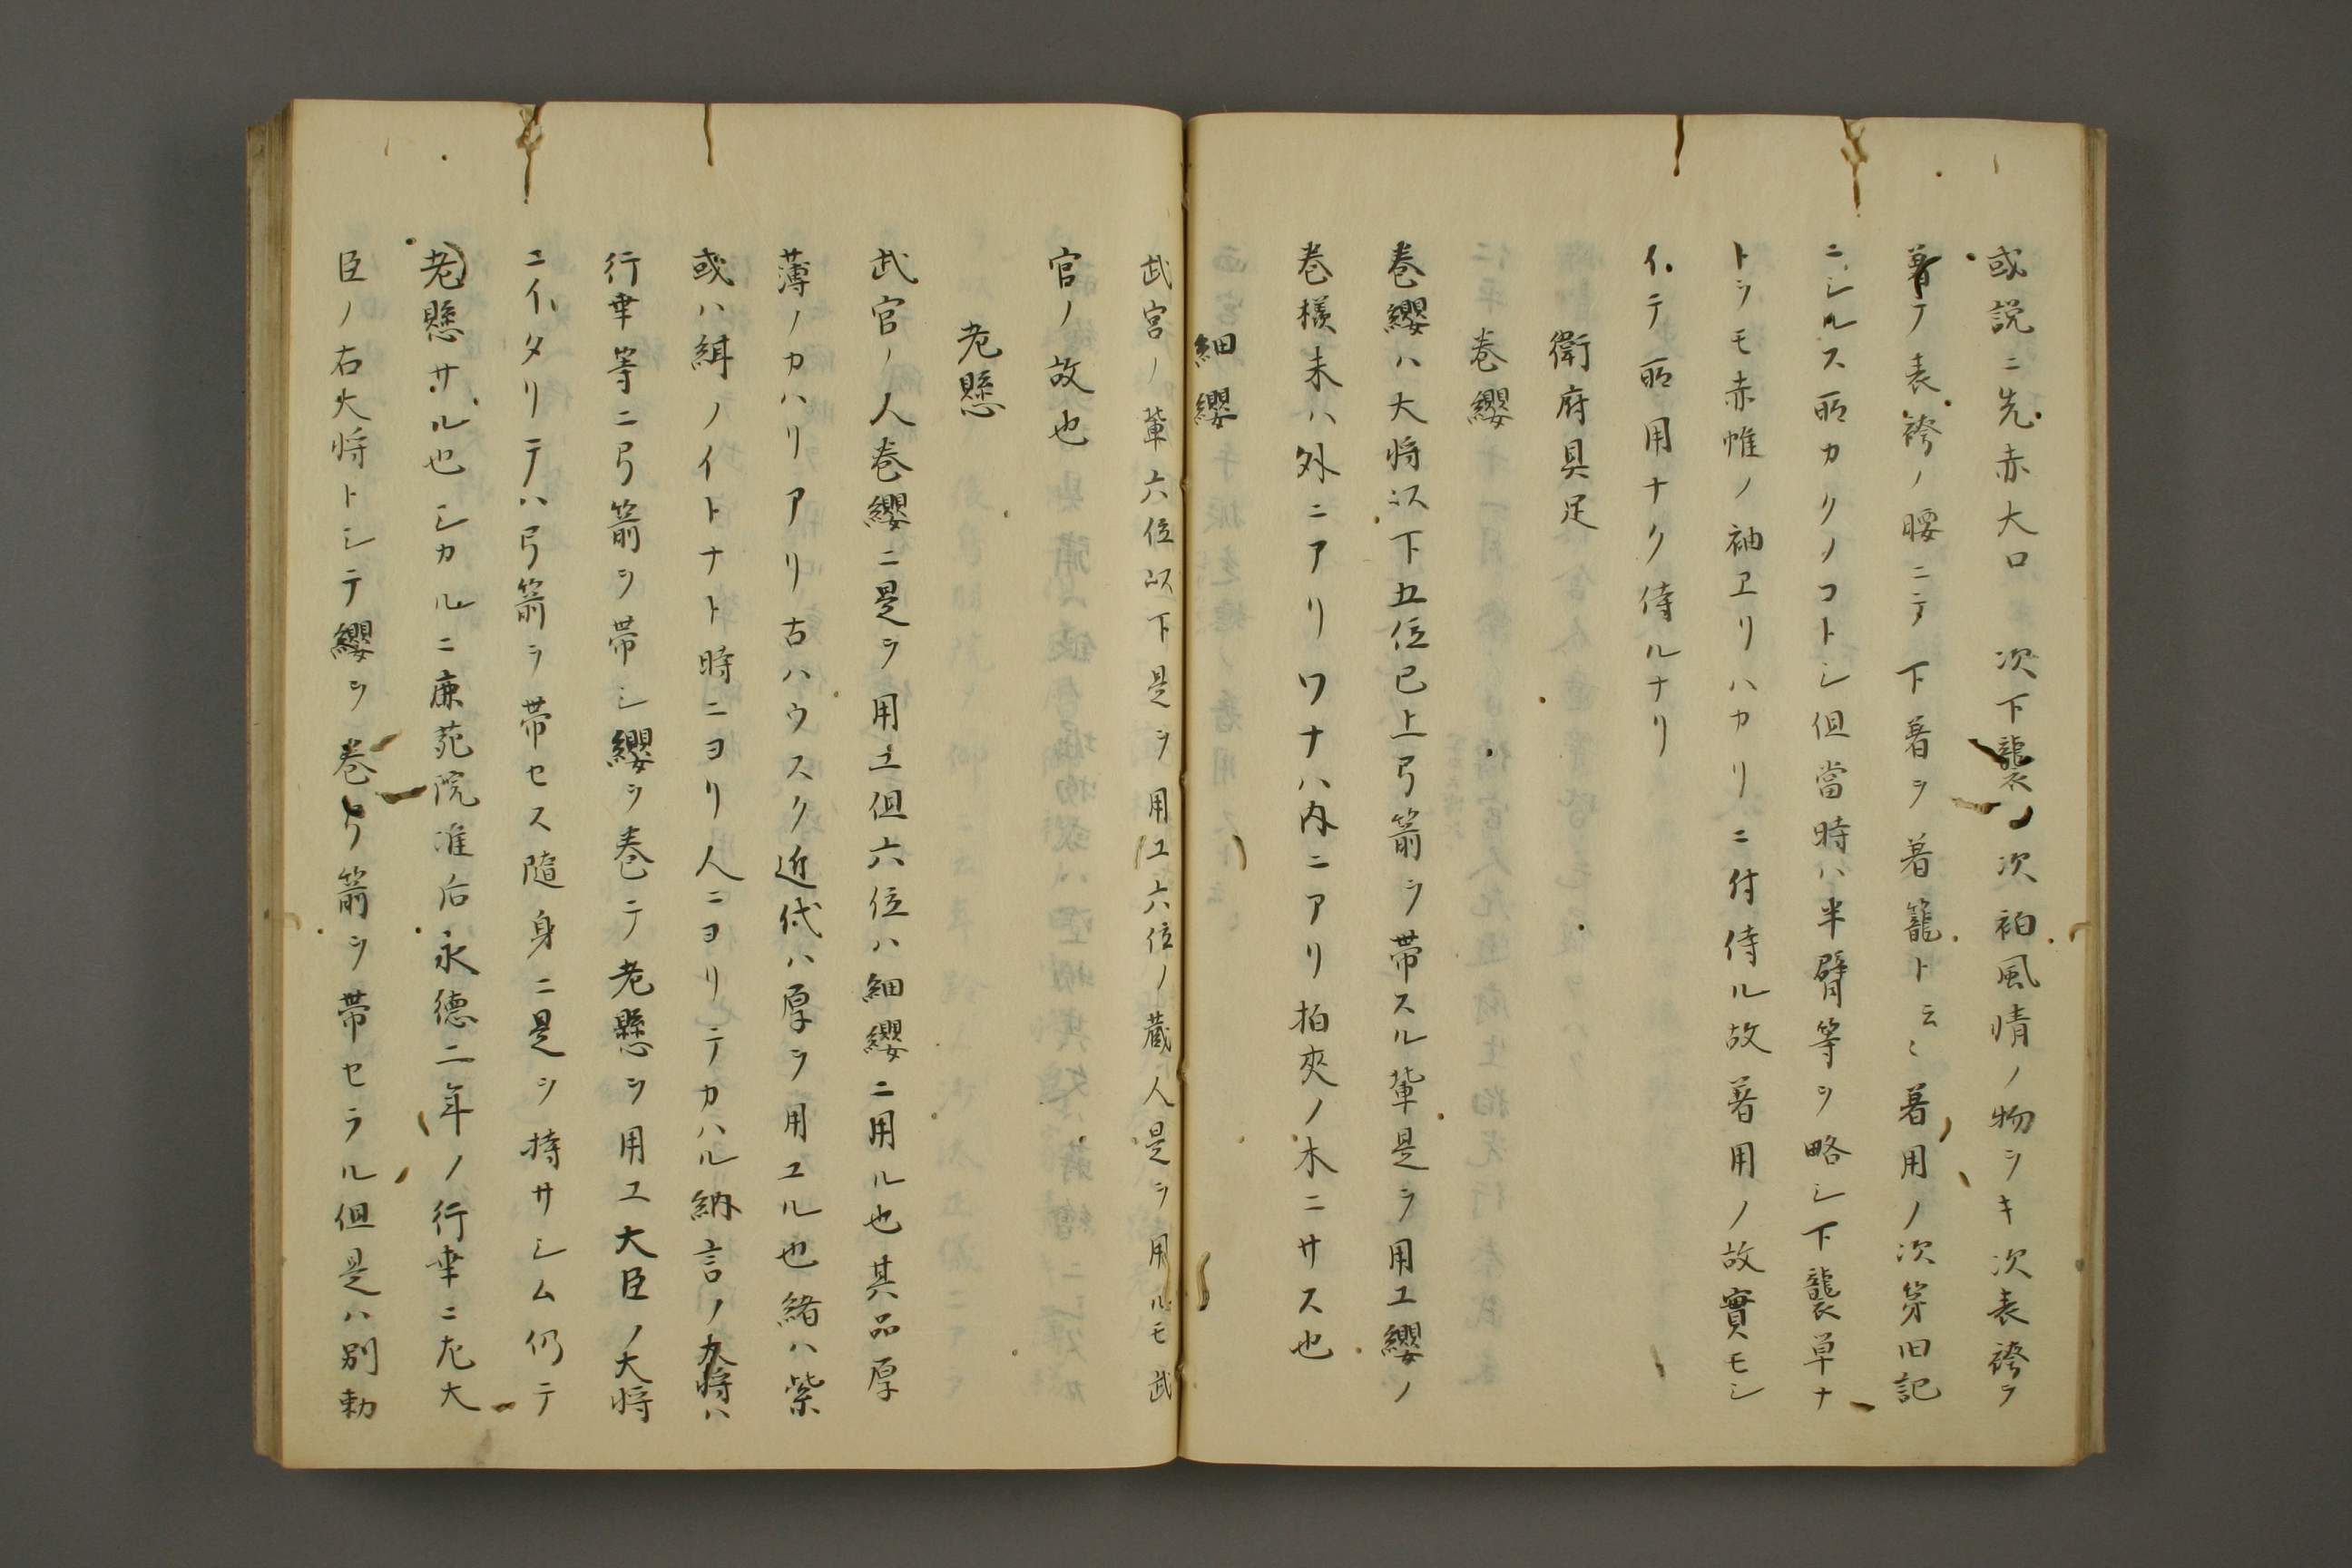 或説ニ先赤大口　次下襲次衵風情ノ物ヲキ次表袴ヲ
著テ表袴ノ腰ニテ下著ヲ著籠ト云〻著用ノ次第旧記
ニシルス所カクノコトシ但當時ハ半臂等ヲ略シ下襲単ナ
トヲモ赤帷ノ袖ヱリハカリニ付侍ル故著用ノ故實モシ
イテ所用ナク侍ルナリ
衛府具足
巻纓
巻纓ハ大将以下五位已上弓箭ヲ帯スル輩是ヲ用ユ纓ノ
巻様末ハ外ニアリワナハ内ニアリ拍夾ノ木ニサス也
細纓
武官ノ輩六位以下是ヲ用ユ六位ノ蔵人是ヲ用ルモ武
官ノ故也
老懸
武官ノ人巻纓ニ是ヲ用ユ但六位ハ細纓ニ用ル也其品厚
薄ノカハリアリ古ハウスク近代ハ厚ヲ用ユル也緒ハ紫
或ハ緝ノイトナト時ニヨリ人ニヨリテカハル納言ノ大将ハ
行幸等ニ弓箭ヲ帯シ纓ヲ巻テ老懸ヲ用ユ大臣ノ大将
ニイタリテハ弓箭ヲ帯セス隨身ニ是ヲ持サシム仍テ
老懸サル也シカルニ鹿苑院准后永徳二年ノ行幸ニ左大
臣ノ右大将トシテ纓ヲ巻弓箭ヲ帯セラル但是ハ別勅